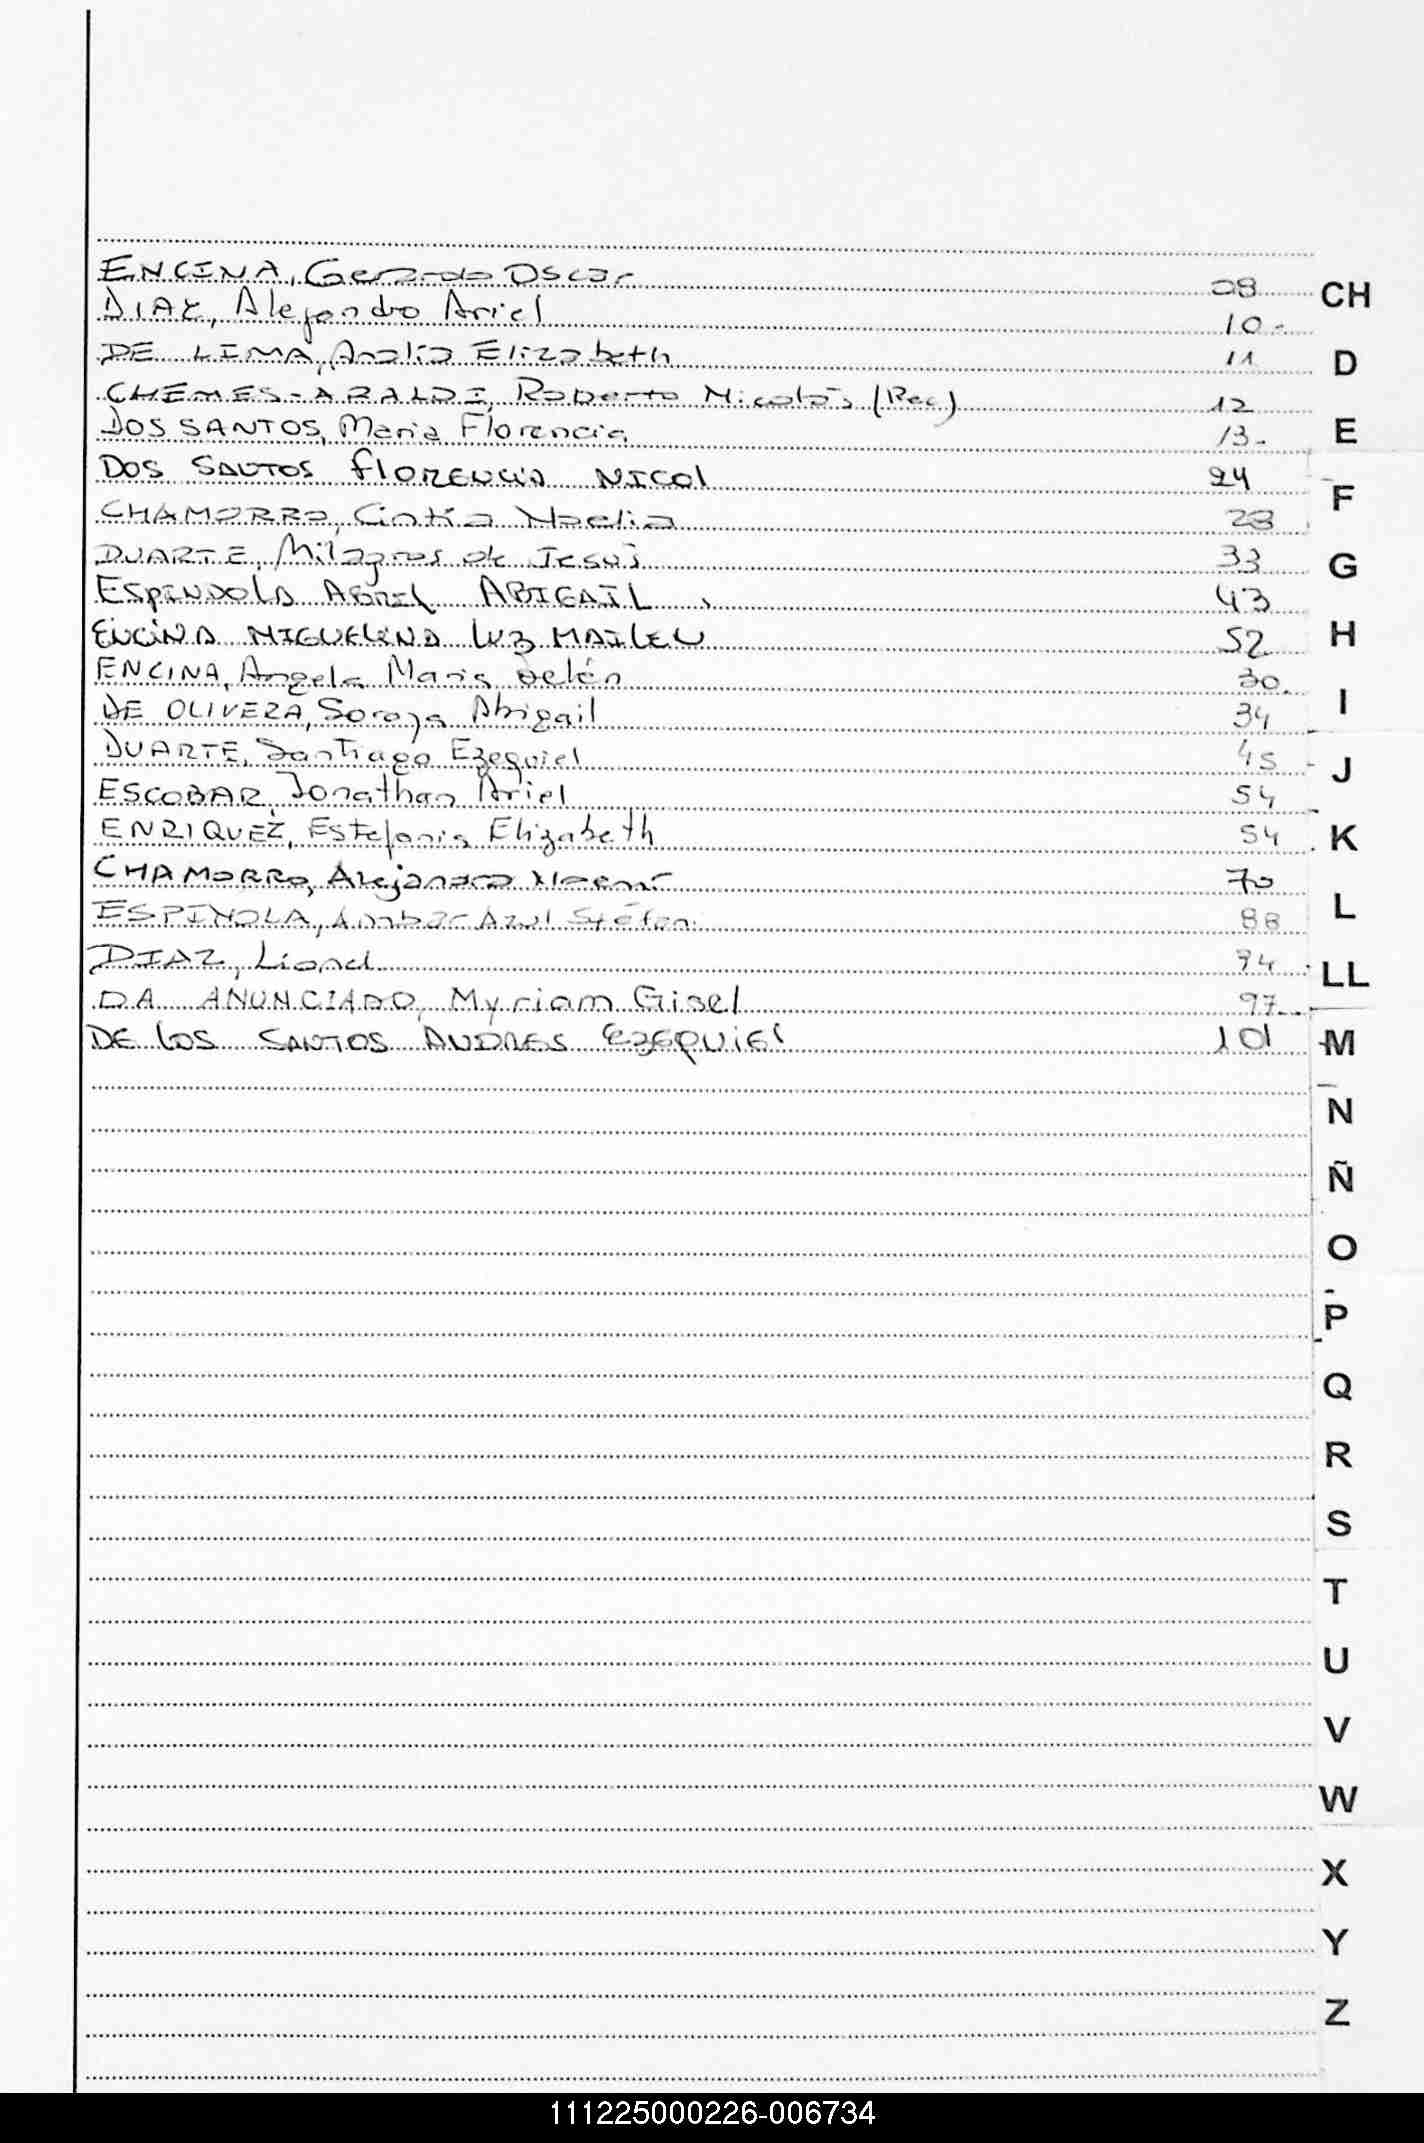 ENCINA, Gerardo Oscar 08
DIAZ, Alejandro Ariel 10.
DE LIMA, Analia Elizabeth 11
CHEMES-ARALDI, Roberto Nicolás (Rec) 12
DOS SANTOS, Maria Florencia 13.
DOS SANTOS florencia NICOl 24
CHAMORRO, Cintia Noelia 28
DUARTE, Milagros de Jesús 33
ESPINDOLA ABRIL ABIGAIL 43
ENCINA MIGUELINA LUZ MAILEN 52
ENCINA, Angela Maris Belén 30.
DE OLIVERA, Soraya Abigail 34
DUARTE, Santiago Ezequiel 45
ESCOBAR, Jonathan Ariel 54
ENRIQUEZ, Estefania Elizabeth 54
CHAMORRO, Alejandra Noemí 70
ESPINOLA, Ambar Azul Stefani 88
DIAZ, Lionel 94
DA ANUNCIADO, Myriam Gisel 97.
DE LOS SANTOS ANDRES EZEQUIEl 101
CH
D
E
F
G
H
I
J
K
L
LL
M
N
Ñ
O
P
Q
R
S
T
U
V
W
X
Y
Z
111225000226-006734